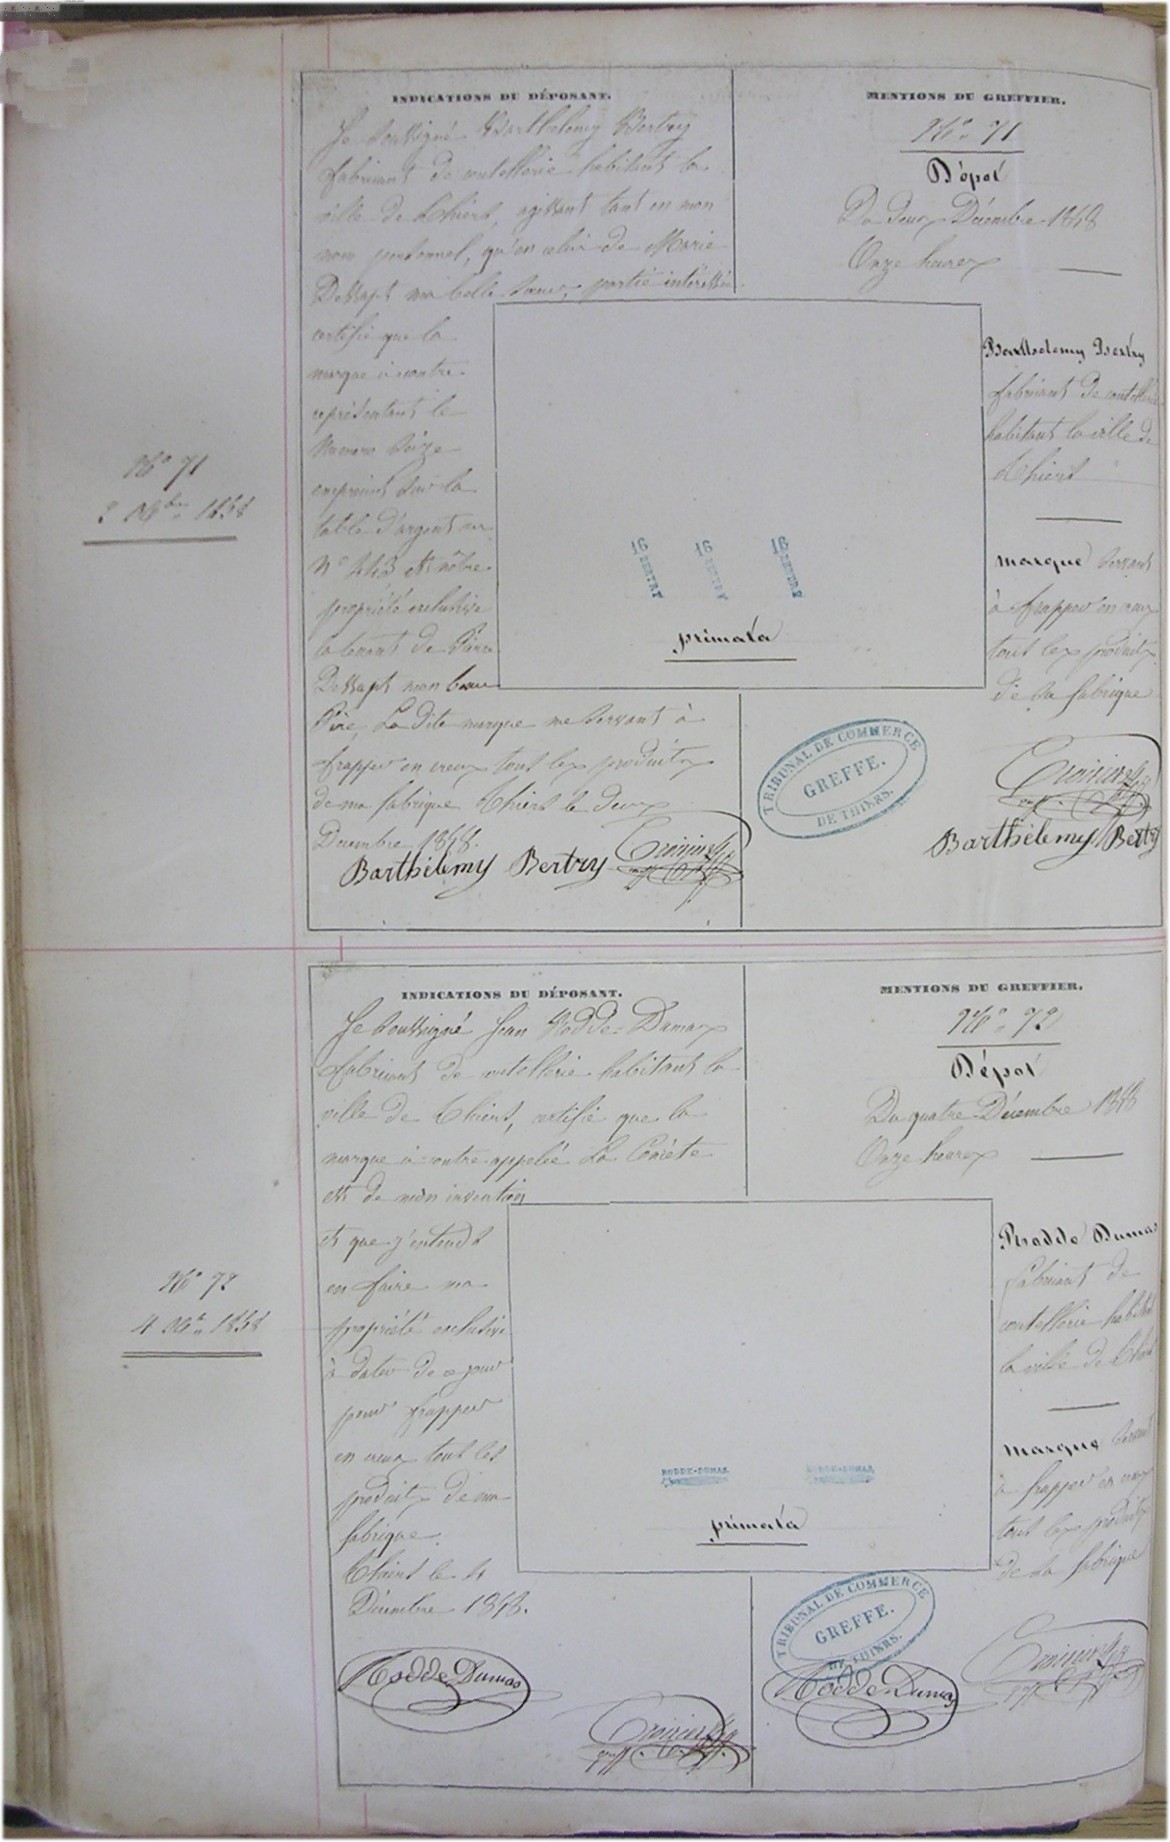 INDICATIONS DU DÉPOSANT.
Je soussigné Barthélemy Bertry
fabricant de coutellerie habitant la
ville de Thiers, agissant tant en mon
nom personnel, qu'en celui de Marie
Dessapt ma belle sœur, partie intéressée
certifie que la
marque ci contre
représentant le
Numero Seize
empreint sur la
table d'argent au
N° 443 est nôtre
propriété exclusive
la tenant de Pierre
Dessapt mon beau
Père, La dite marque me servant à
frapper en creux tous les produits
de ma fabrique Thiers le deux
Decembre 1858.
Barthélemy Bertry
MENTIONS DU GREFFIER.
N° 71
Dépôt
Du deux Décembre 1858
Onze heures
Barthelemy Bertry
fabricant de coutellerie
habitant la ville de
Thiers
marque servant
à frapper en creux
tous les produits
de sa fabrique
N° 71
2 Xbre 1858
16 BERTRY
16 BERTRY
16 BERTRY
primata
TRIBUNAL DE COMMERCE
GREFFE.
DE THIERS.
Barthélemy Bertry
INDICATIONS DU DÉPOSANT.
Je soussigné Jean Rodde-Dumas
fabricant de coutellerie habitant la
ville de Thiers, certifie que la
marque ci-contre appelée La Comète
est de mon invention
et que j'entends
en faire ma
propriété exclusive
à dater de ce jour
pour frapper
en creux tous les
produits de ma
fabrique.
Thiers le 4
Décembre 1858.
Rodde Dumas
MENTIONS DU GREFFIER.
N° 72
Dépôt
Du quatre Décembre 1858
Onze heures
Rodde Dumas
fabricant de
coutellerie habitant
la ville de Thiers
marque servant
à frapper en creux
tous les produits
de sa fabrique
N° 72
4 Xbre 1858
RODDE-DUMAS
RODDE-DUMAS
primata
TRIBUNAL DE COMMERCE
GREFFE.
DE THIERS.
Rodde Dumas